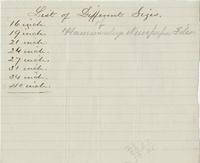 List of Different Sizes.
16 inch.
19 inch
21 inch
24 inch
27 inch
31 inch
34 inch.
40 inch.
Hammond's Newspaper Files